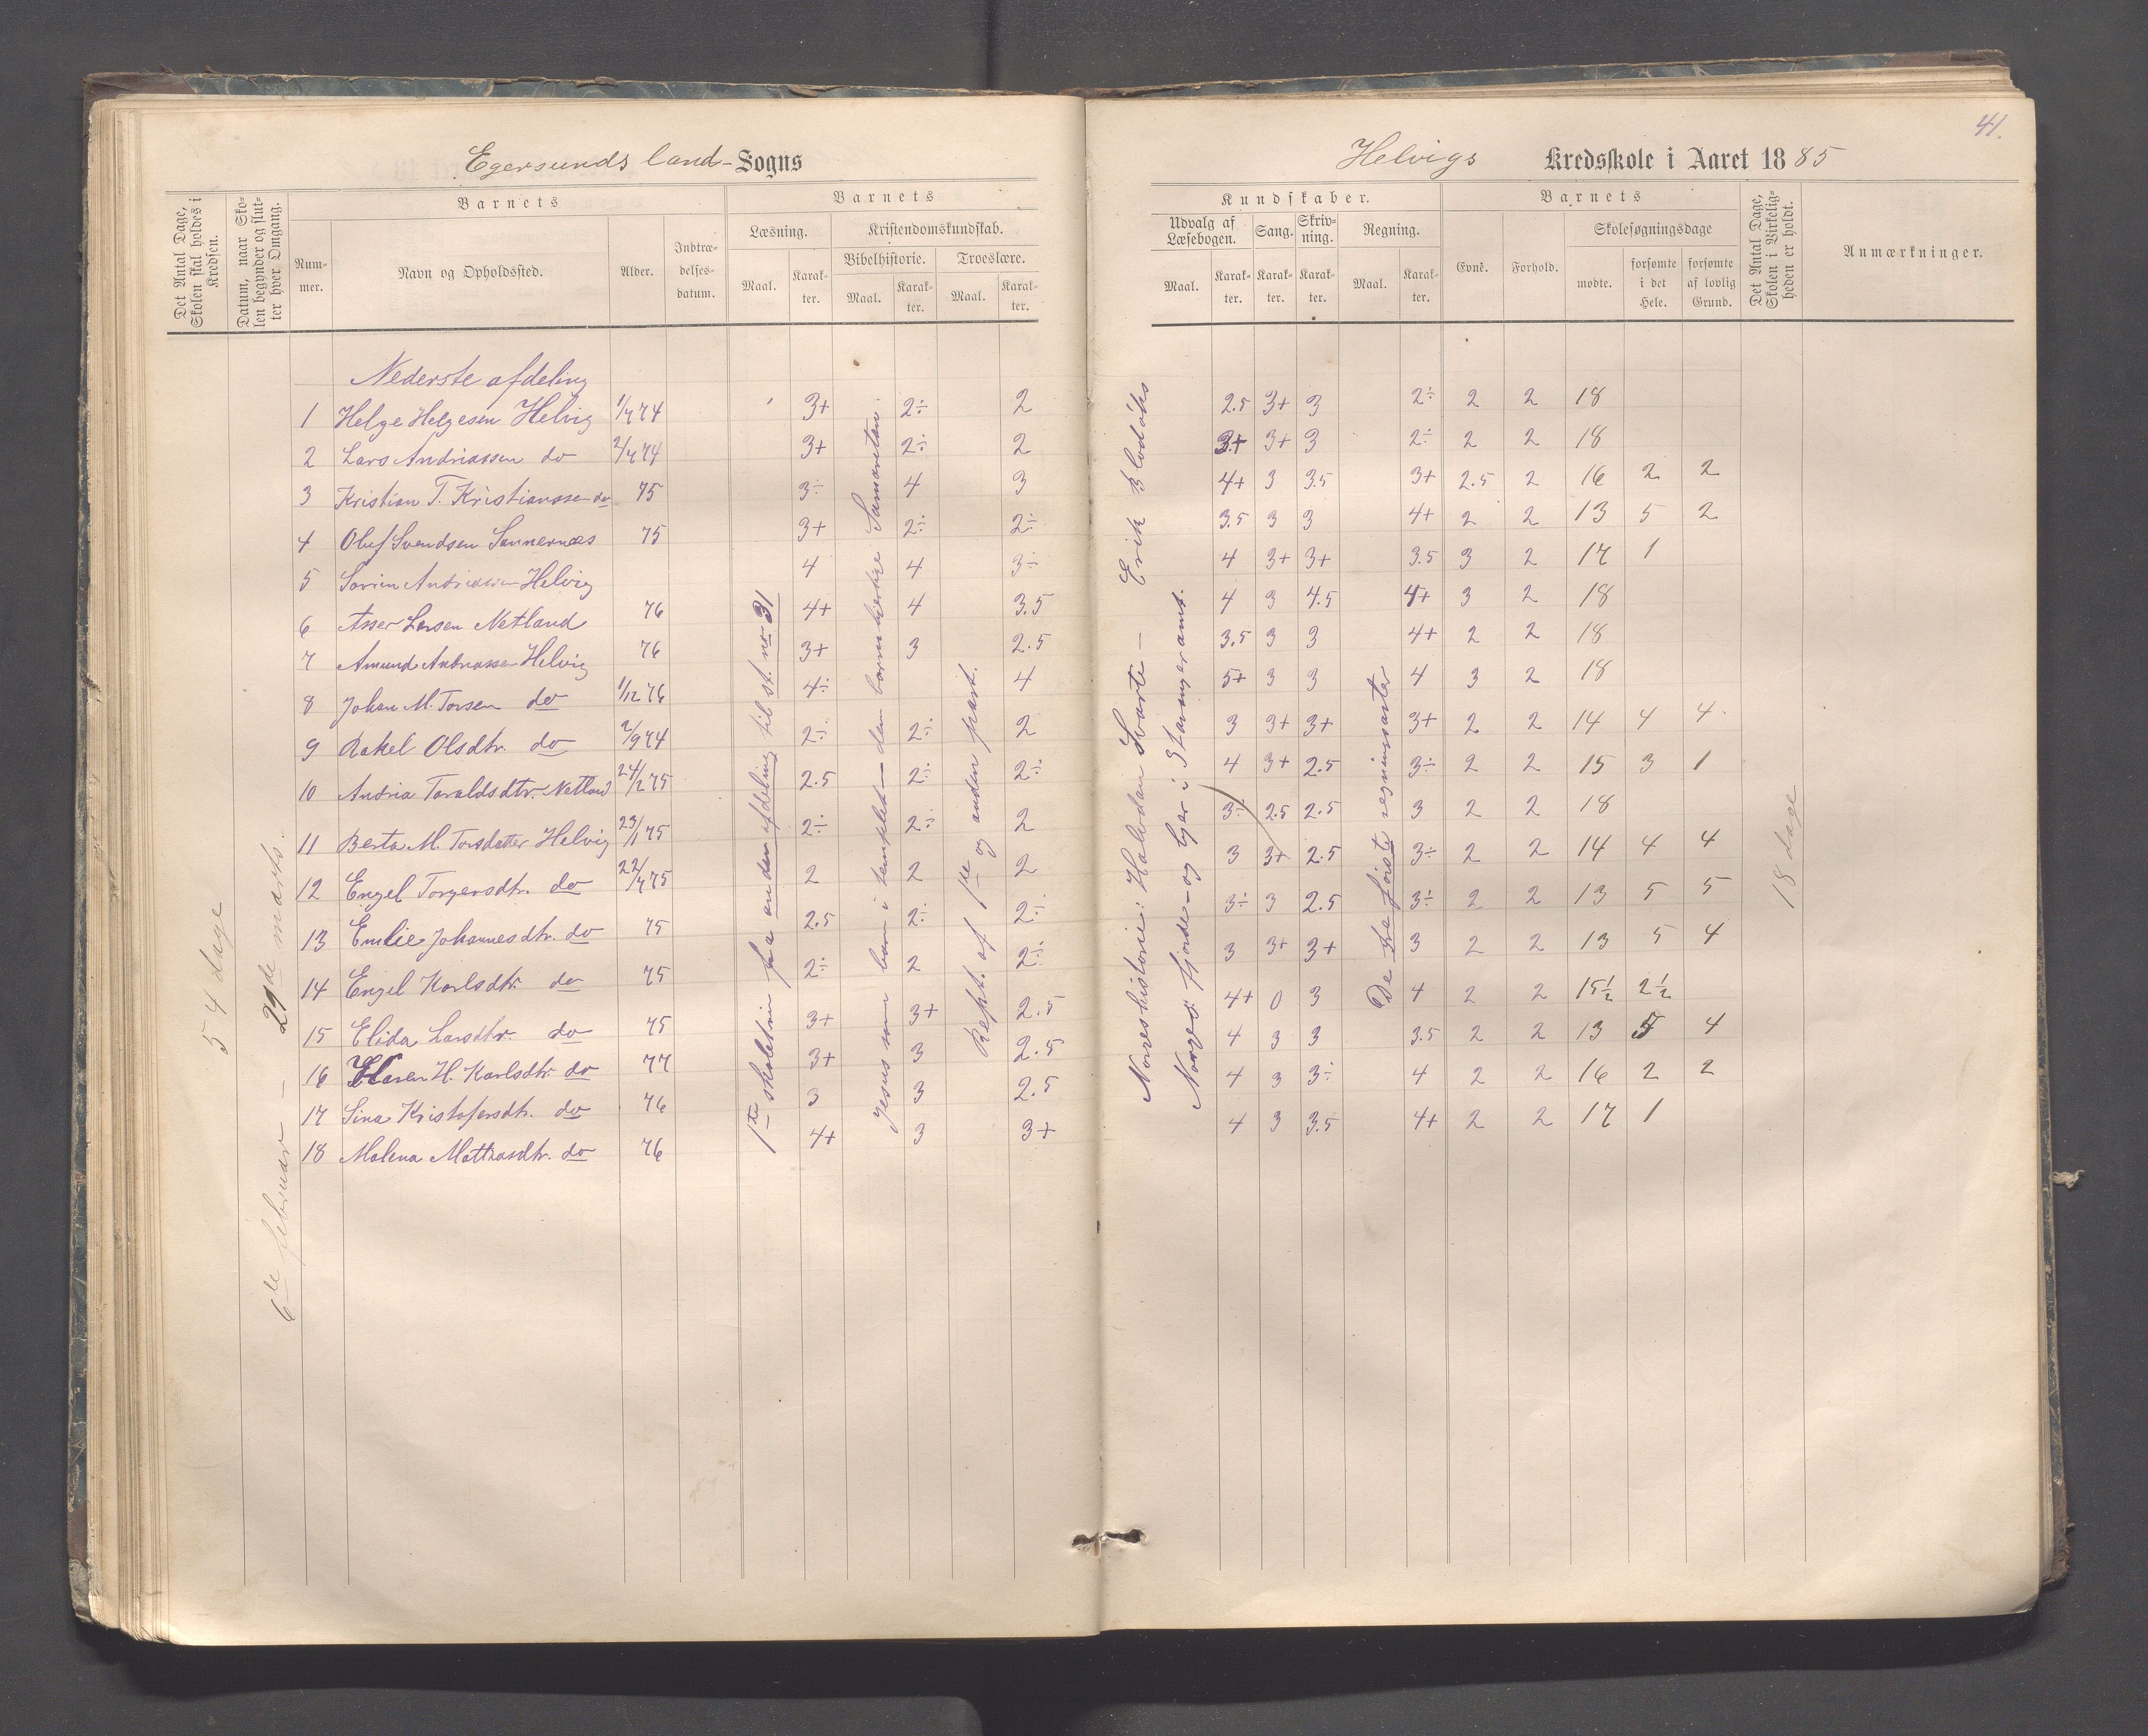 41.
Egersunds land-Sogns
Helvigs Kredsskole i Aaret 1885
Det Antal Dage, Skolen skal holdes i Kredsen.
Datum, naar Skolen begynder og slutter hver Omgang.
Barnets
Nummer.
Navn og Opholdssted.
Alder.
Indtrædelsesdatum.
Barnets
Læsning.
Maal.
Karakter.
Kristendomskundskab.
Bibelhistorie.
Maal.
Karakter.
Troeslære.
Maal.
Karakter.
Kundskaber.
Udvalg af Læsebogen.
Maal.
Karakter.
Sang.
Karakter.
Skrivning.
Karakter.
Regning.
Maal.
Karakter.
Barnets
Evne.
Forhold.
Skolesøgningsdage
mødte.
forsømte i det Hele.
forsømte af lovlig Grund.
Det Antal Dage, Skolen i Virkeligheden er holdt.
Anmærkninger.
54 dage
6te februar - 29de marts.
Nederste afdeling
1 Helge Helgesen Helvig 1/7 74 3+ 2÷ 2 2.5 3+ 3 2÷ 2 2 18
2 Lars Andriassen do 2/7 74 3+ 2÷ 2 3+ 3+ 3 2÷ 2 2 18
3 Kristian T. Kristianssen do 75 3÷ 4 3 4+ 3 3.5 3+ 2.5 2 16 2 2
4 Oluf Svendsen Sannernæs 75 3+ 2÷ 2÷ 3.5 3 3 4+ 2 2 13 5 2
5 Sørin Andreassen Helvig 4 4 3÷ 4 3+ 3+ 3.5 3 2 17 1
6 Asser Larsen Netland 76 4+ 4 3.5 4 3 4.5 4+ 3 2 18
7 Amund Andreassen Helvig 76 3+ 3 2.5 3.5 3 3 4+ 2 2 18
8 Johan M. Torsen do 1/12 76 4÷ 4 5+ 3 3 4 3 2 18
9 Rakel Olsdtr. do 2/9 74 2÷ 2÷ 2 3 3+ 3+ 3+ 2 2 14 4 4
10 Andria Toraldsdtr. Netland 24/2 75 2.5 2÷ 2÷ 4 3+ 2.5 3÷ 2 2 15 3 1
11 Berta M. Torsdatter Helvig 23/1 75 2÷ 2÷ 2 3÷ 2.5 2.5 3 2 2 18
12 Engel Torgersdtr. do 22/7 75 2 2 2 3 3+ 2.5 3÷ 2 2 14 4 4
13 Emilie Johannesdtr. do 75 2.5 2÷ 2÷ 3÷ 3 2.5 3÷ 2 2 13 5 5
14 Engel Karlsdtr. do 75 2÷ 2 2÷ 3 3+ 3+ 3 2 2 13 5 4
15 Elida Larsdtr. do 75 3+ 3+ 2.5 4+ 0 3 4 2 2 15½ 2½
16 Karen H. Karlsdtr. do 77 3+ 3 2.5 4 3 3 3.5 2 2 13 5 4
17 Sina Kristofersdtr. do 76 3 3 2.5 4 3 3÷ 4 2 2 16 2 2
18 Malena Mattiasdtr. do 76 4+ 3 3+ 4 3 3.5 4+ 2 2 17 1
1te skoletrin fra anden afdeling til st. no 31
Jesus som barn i templet - den barmhjertige Samaritan.
Rept. af 1te og anden part.
Norges historie: Halvdan Svarte - Erik Blodøks
Norges fjorde - og byer i Stavanger amt.
De tre første regningsarter
18 dage